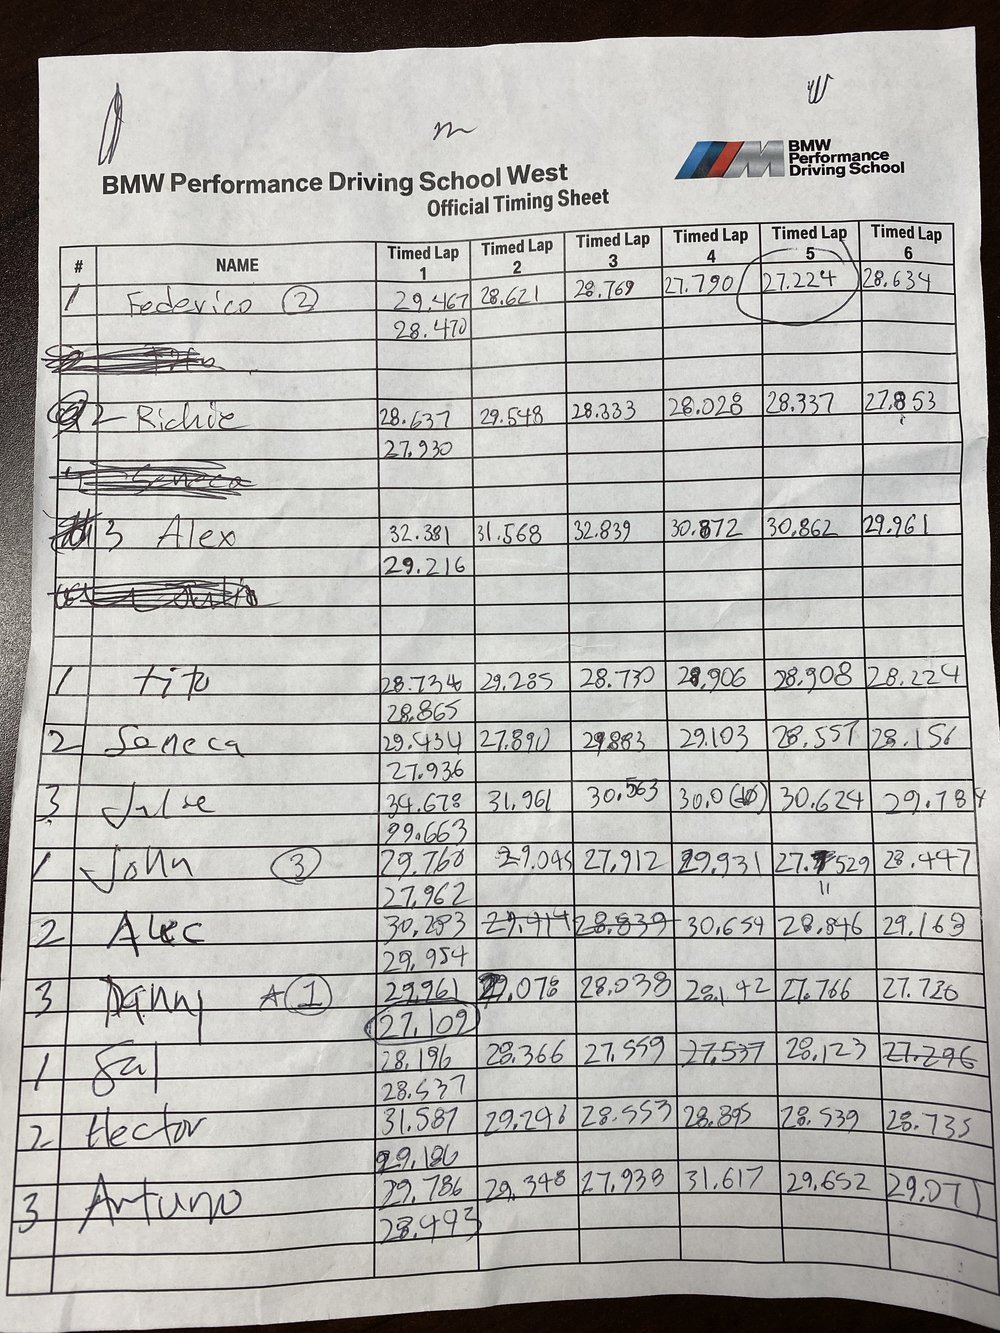 BMW
Performance
Driving School
BMW Performance Driving School West
Official Timing Sheet
# NAME Timed Lap 1 Timed Lap 2 Timed Lap 3 Timed Lap 4 Timed Lap 5 Timed Lap 6
1 Federico 2 29.467 28.621 28.769 27.790 27.224 28.634
28.470
2 Richie 28.637 29.548 28.333 28.028 28.337 27.853
27.930
Seneca
3 Alex 32.381 31.568 32.839 30.872 30.862 29.961
29.216
1 tito 28.734 29.285 28.730 28.906 28.908 28.224
28.865
2 Seneca 29.434 27.890 29.883 29.103 28.557 28.156
27.936
3 34.678 31.961 30.563 30.0 30.624 29.784
99.663
1 John 3 29.760 29.045 27.912 29.931 27.529 28.447
27.962
2 Alec 30.283 29.414 28.839 30.654 28.846 29.163
29.954
3 Danny 1 29.961 29.078 28.038 28.142 27.766 27.726
27.109
1 Sal 28.196 28.366 27.559 27.537 28.123 27.296
28.537
2 Hector 31.587 29.296 28.553 28.895 28.539 28.735
29.186
3 Arturo 29.786 29.348 27.938 31.617 29.652 29.071
28.493